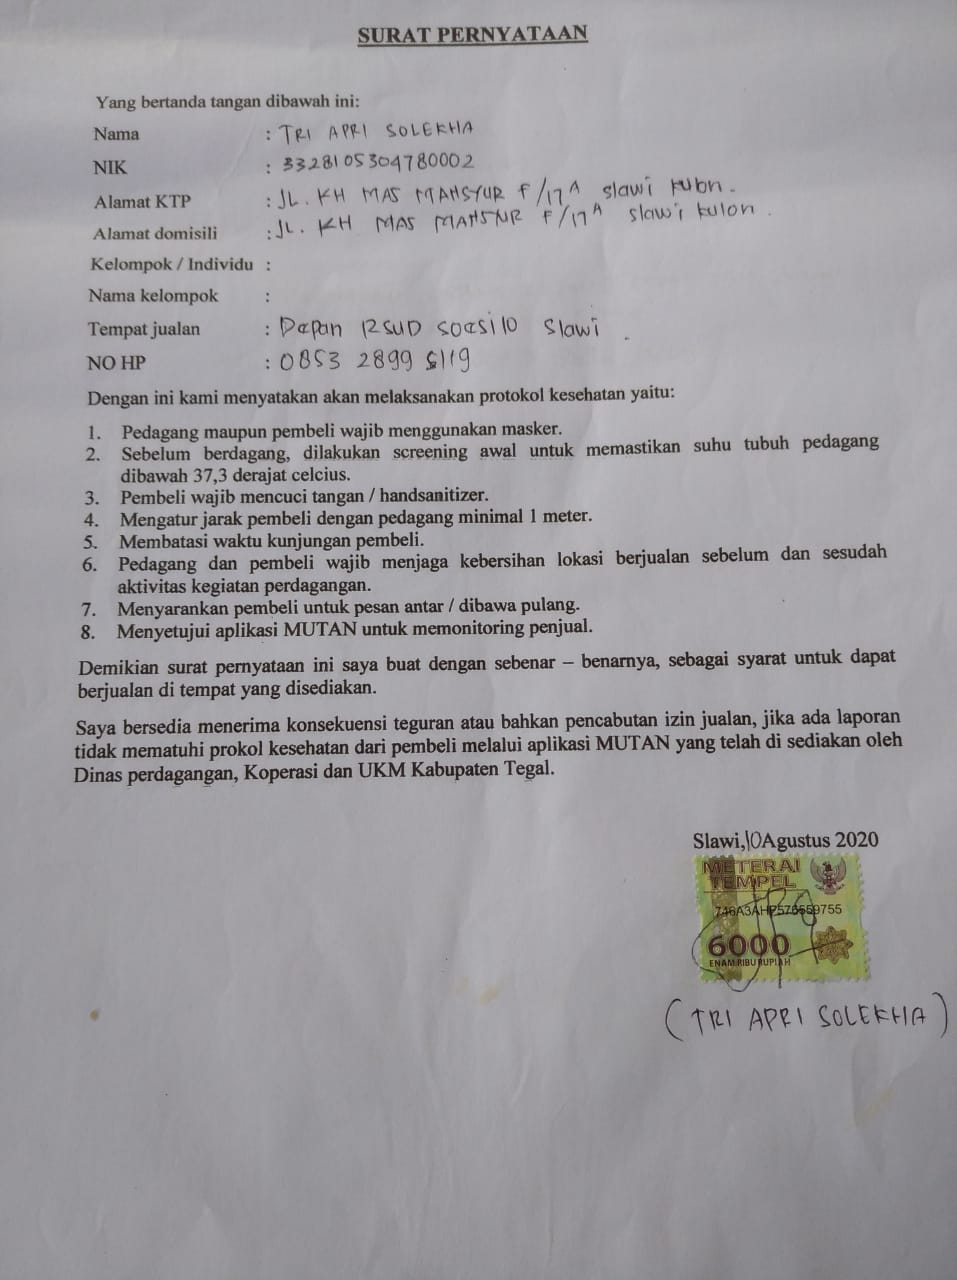 SURAT PERNYATAAN
Yang bertanda tangan dibawah ini:
Nama : TRI APRI SOLEKHA
NIK : 3328105304780002
Alamat KTP : JL. KH MAS MANSYUR F/17A slawi kulon.
Alamat domisili : JL. KH MAS MANSYUR F/17A slawi kulon.
Kelompok / Individu :
Nama kelompok :
Tempat jualan : Depan RSUD soesilo slawi.
NO HP : 0853 2899 5119
Dengan ini kami menyatakan akan melaksanakan protokol kesehatan yaitu:
1. Pedagang maupun pembeli wajib menggunakan masker.
2. Sebelum berdagang, dilakukan screening awal untuk memastikan suhu tubuh pedagang
dibawah 37,3 derajat celcius.
3. Pembeli wajib mencuci tangan / handsanitizer.
4. Mengatur jarak pembeli dengan pedagang minimal 1 meter.
5. Membatasi waktu kunjungan pembeli.
6. Pedagang dan pembeli wajib menjaga kebersihan lokasi berjualan sebelum dan sesudah
aktivitas kegiatan perdagangan.
7. Menyarankan pembeli untuk pesan antar / dibawa pulang.
8. Menyetujui aplikasi MUTAN untuk memonitoring penjual.
Demikian surat pernyataan ini saya buat dengan sebenar – benarnya, sebagai syarat untuk dapat
berjualan di tempat yang disediakan.
Saya bersedia menerima konsekuensi teguran atau bahkan pencabutan izin jualan, jika ada laporan
tidak mematuhi prokol kesehatan dari pembeli melalui aplikasi MUTAN yang telah di sediakan oleh
Dinas perdagangan, Koperasi dan UKM Kabupaten Tegal.
Slawi,10Agustus 2020
METERAI
TEMPEL
6000
ENAM RIBU RUPIAH
(TRI APRI SOLEKHA)